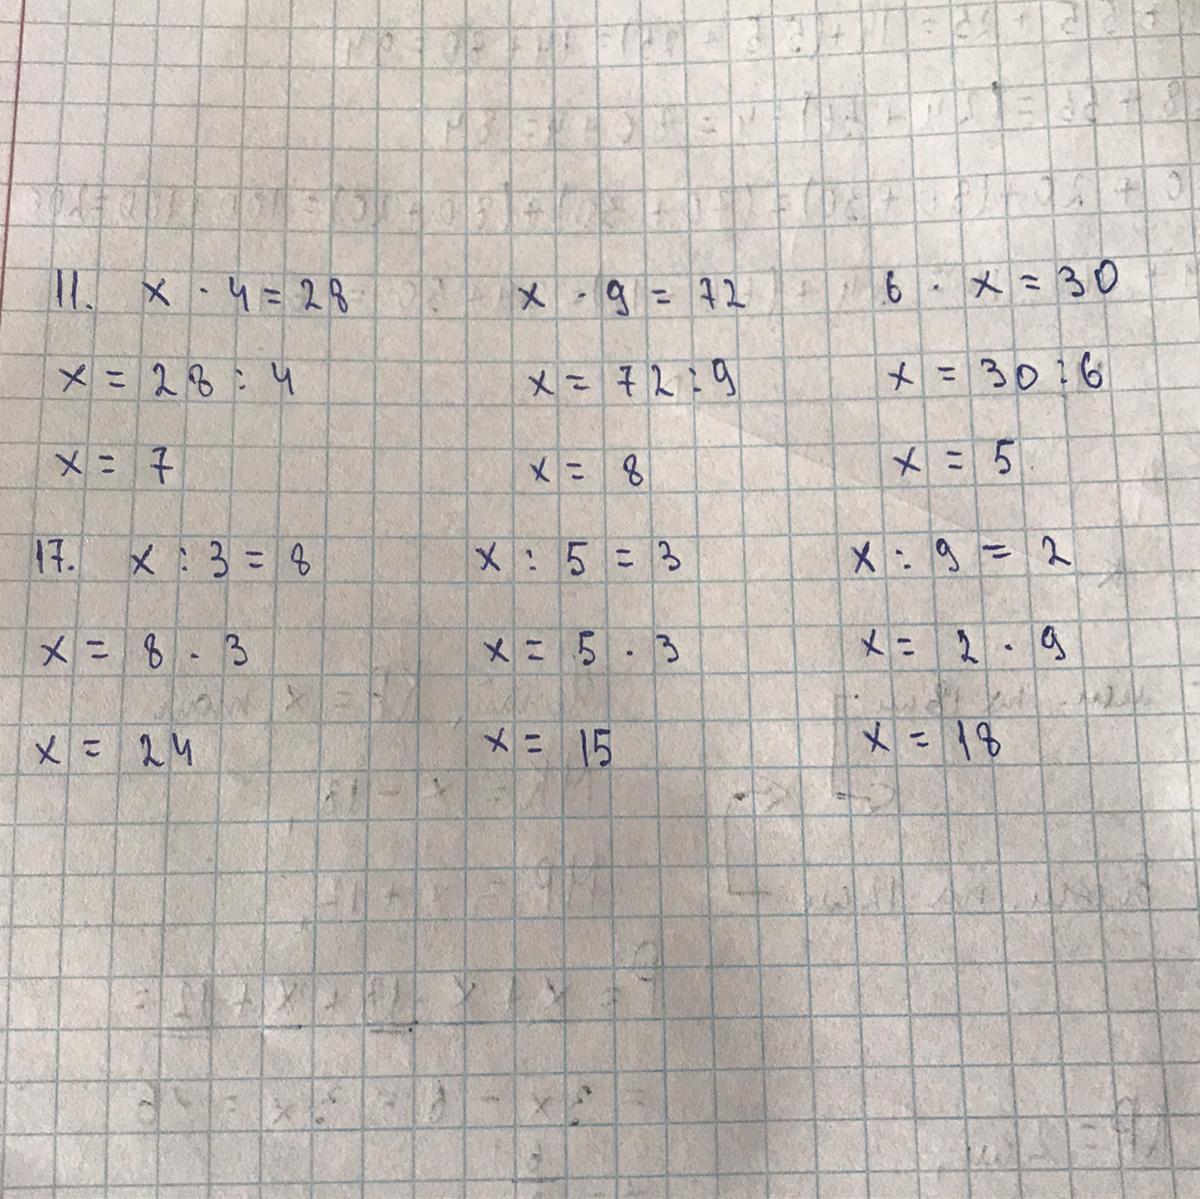 11. x · 4 = 28 x · 9 = 72 6 · x = 30
x = 28 : 4 x = 72 : 9 x = 30 : 6
x = 7 x = 8 x = 5
17. x : 3 = 8 x : 5 = 3 x : 9 = 2
x = 8 · 3 x = 5 · 3 x = 2 · 9
x = 24 x = 15 x = 18